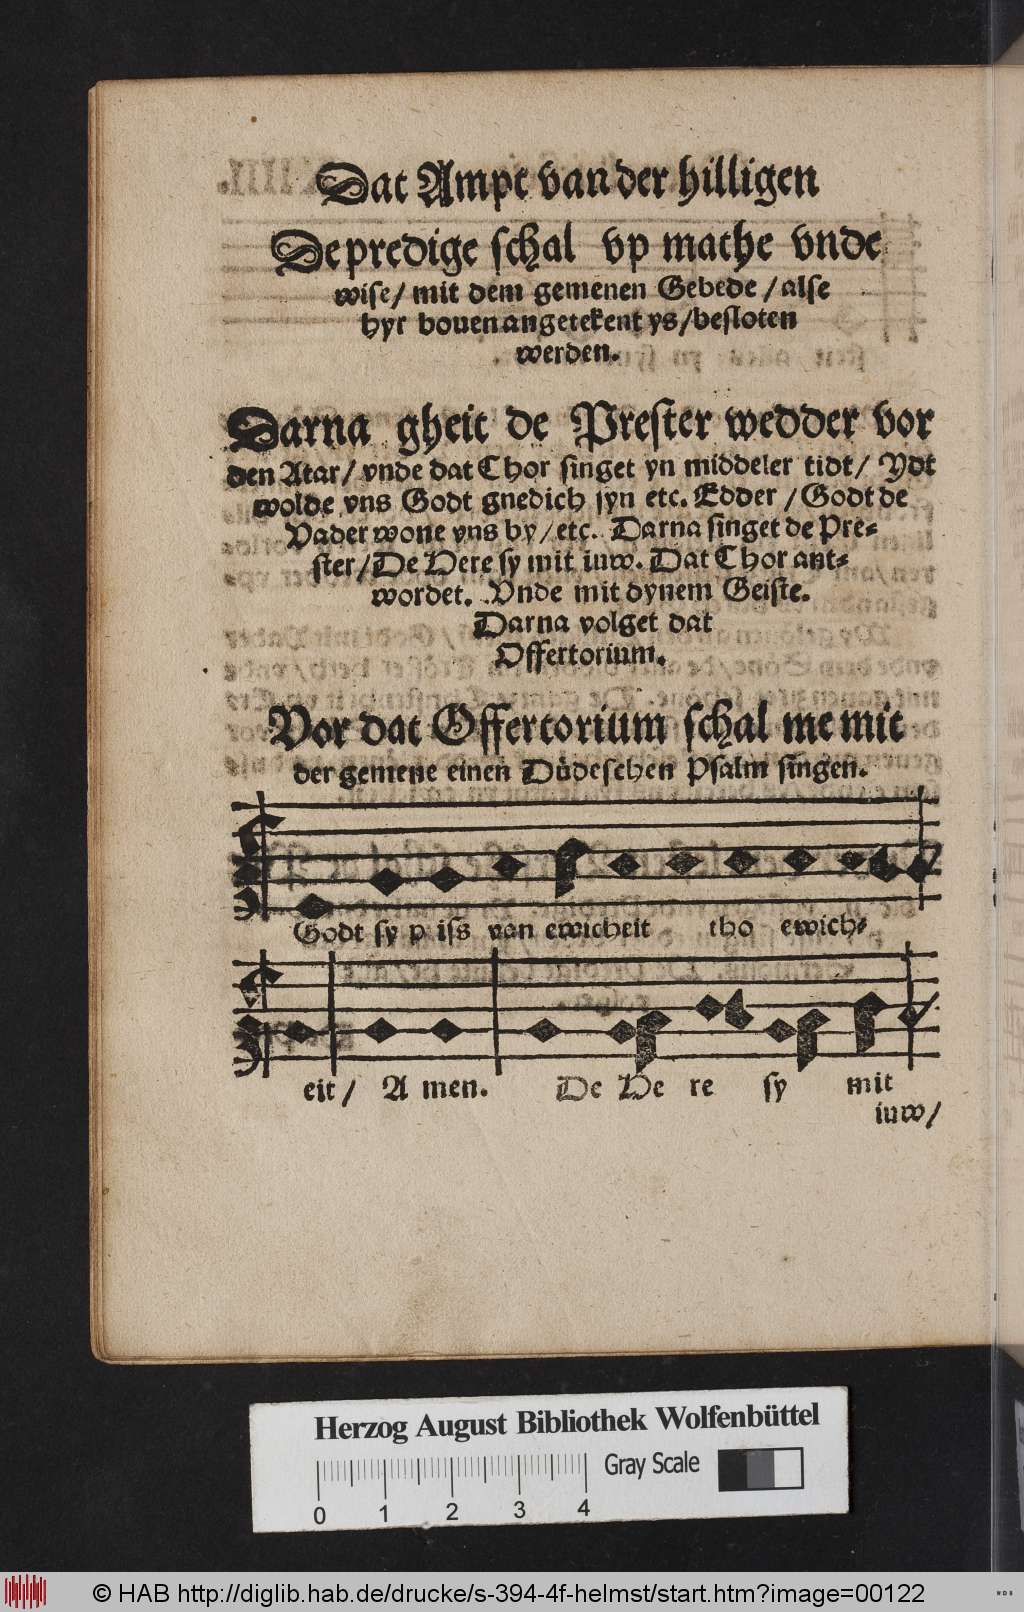 Dat Ampt van der hilligen
De predige schal vp mathe vnde
wise/ mit dem gemenen Gebede / alse
hyr bouen angetekent ys/ besloten
werden.
Darna gheit de Prester wedder vor
den Atar/ vnde dat Chor singet yn middeler tidt/ Ydt
wolde vns Godt gnedich syn etc. Edder / Godt de
Vader wone vns by/ etc. Darna singet de Pre-
ster/ De Here sy mit iuw. Dat Chor ant-
wordet. Vnde mit dynem Geiste.
Darna volget dat
Offertorium.
Vor dat Offertorium schal me mit
der gemene einen Düdeschen Psalm singen.
Godt sy p iss van ewicheit tho ewich-
eit / A men. De He re sy mit
iuw/
Herzog August Bibliothek Wolfenbüttel
Gray Scale
0 1 2 3 4
© HAB http://diglib.hab.de/drucke/s-394-4f-helmst/start.htm?image=00122